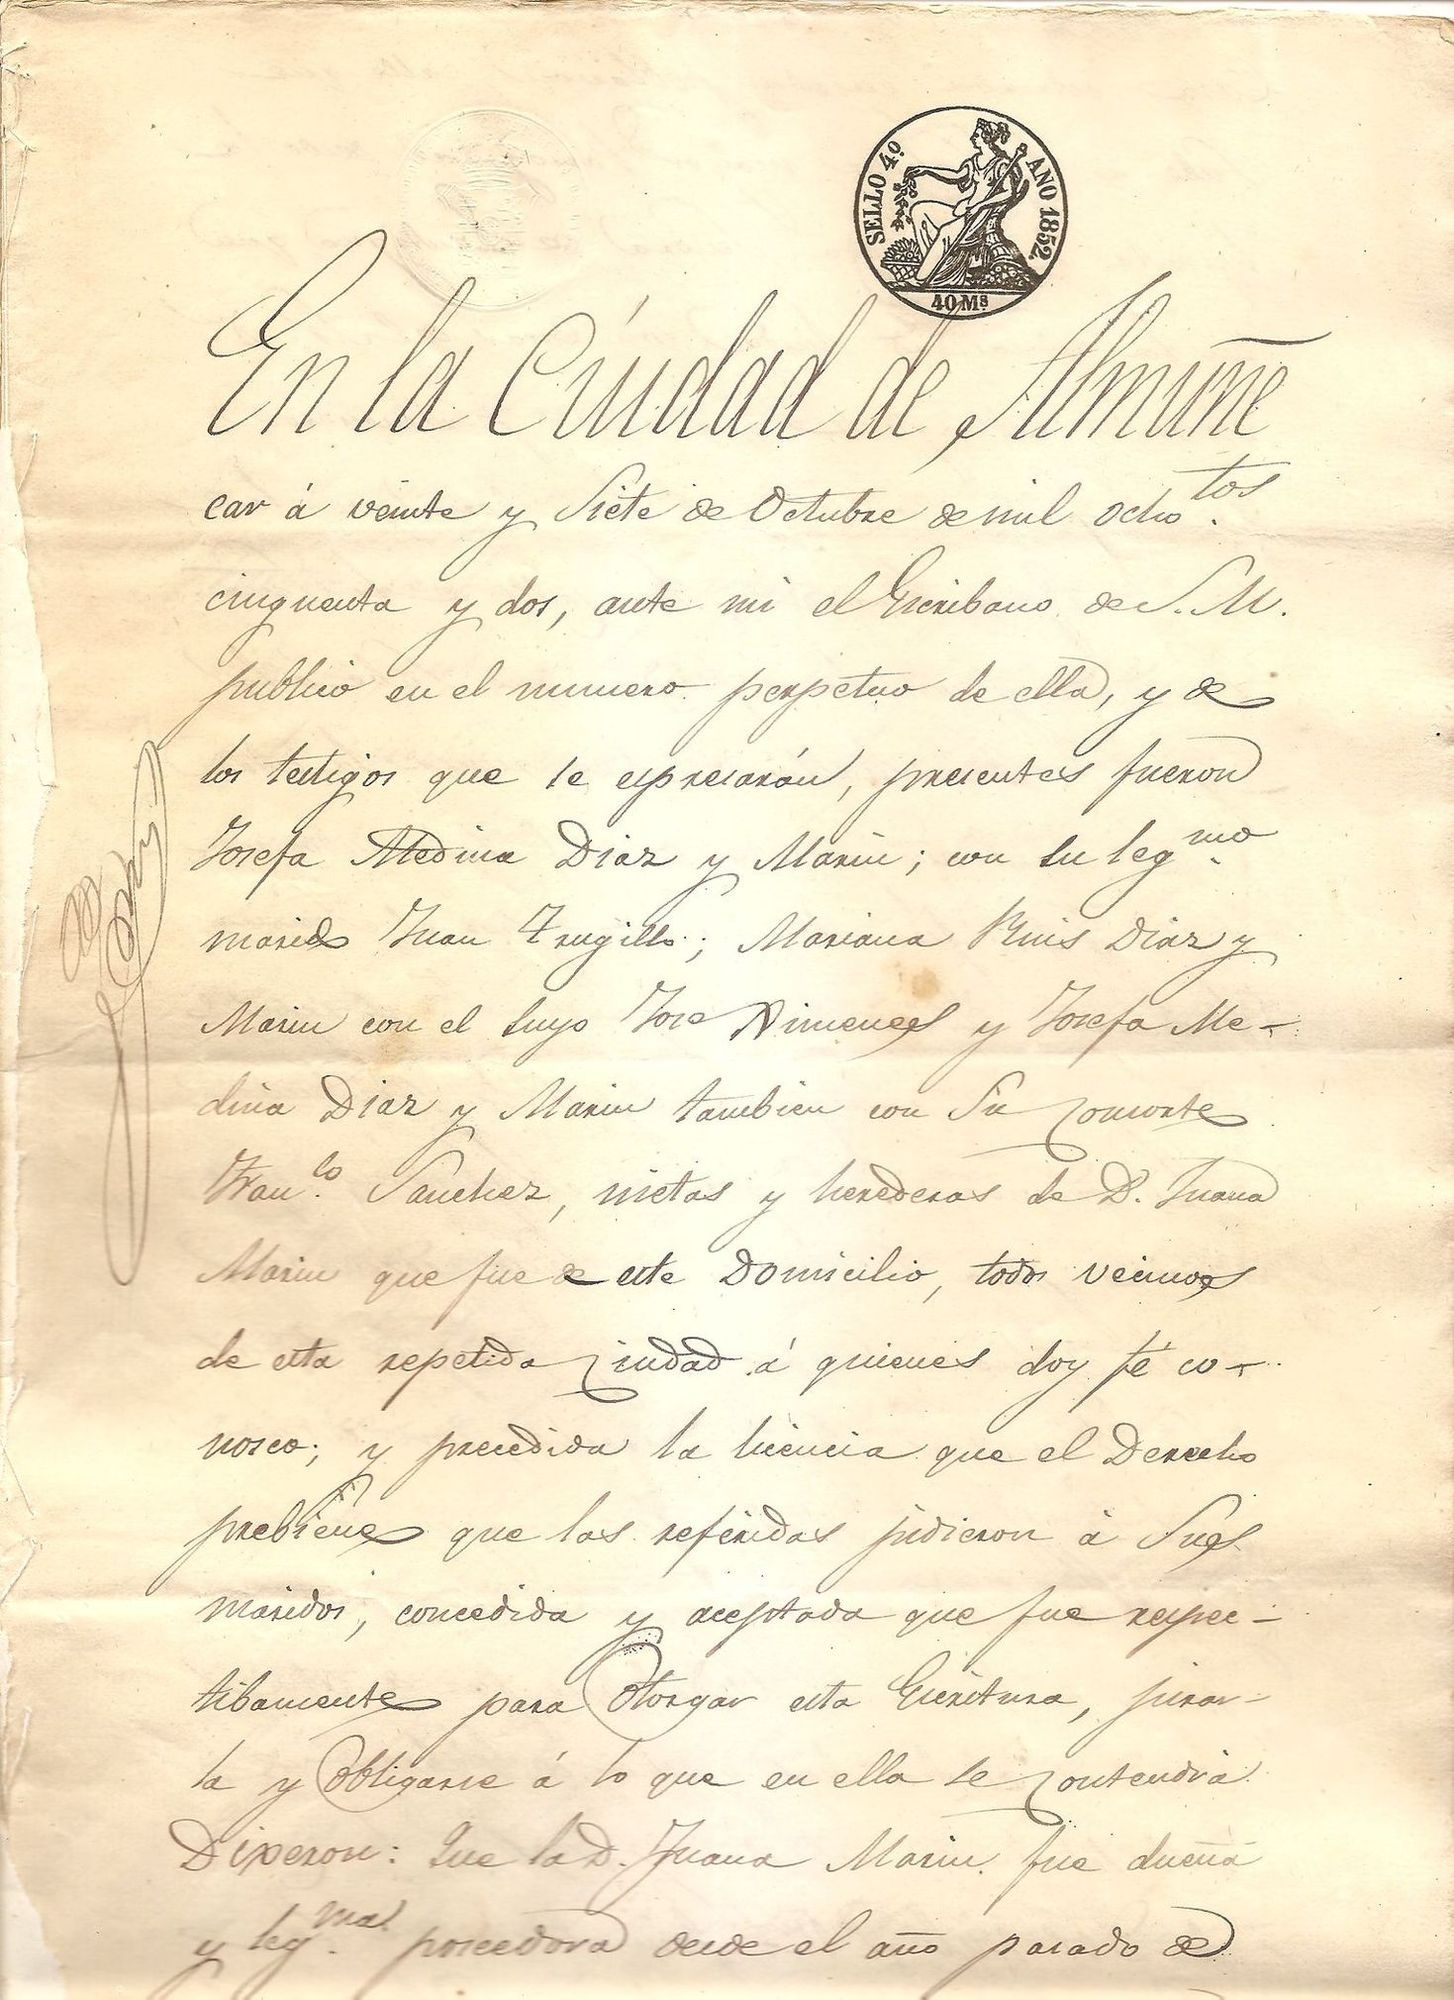 SELLO 4º AÑO 1852. 40 Ms
En la Ciudad de Almuñe
car á veinte y Siete de Octubre de mil ocho.tos
cinquenta y dos, ante mi el Escribano de S. M.
publico en el numero perpetuo de ella, y de
los testigos que se espresarán, presentes fueron
Josefa Medina Diaz y Marin; con su leg.mo
marido Juan Trugillo; Mariana Ruis Diaz y
Marin con el suyo Jose Ximenes y Josefa Me-
dina Diaz y Marin tambien con Su Consorte
Fran.co Sanchez, nietas y herederas de D. Juana
Marin que fue de este Domicilio, todos vecinos
de esta repetida Ciudad á quienes doy fé co-
nosco; y precedida la licencia que el Derecho
prebiene que las referidas pidieron á Sus
maridos, concedida y aceptada que fue respec-
tibamente para Otorgar esta Escritura, jurar-
la y Obligarse á lo que en ella se Contendrá
Dixeron: Que la D. Juana Marin fue dueña
y leg.ma poseedora desde el año pasado de